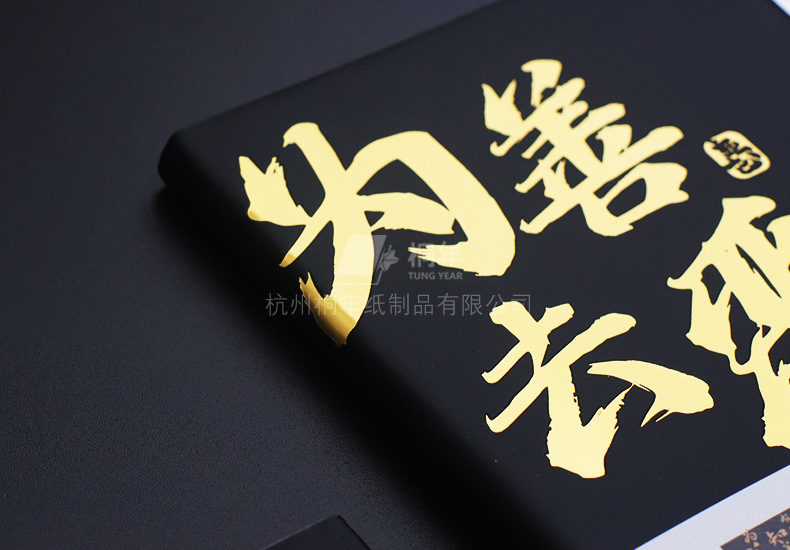 为善
去
桐年
TUNG YEAR
杭州桐年纸制品有限公司
知